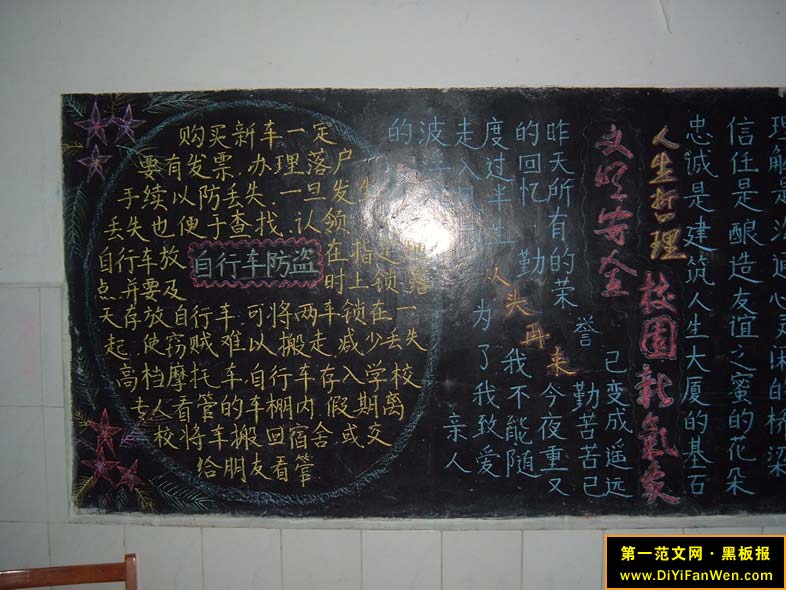 购买新车一定
要有发票.办理落户
手续以防丢失.一旦发生
丢失也便于查找.认领
自行车放 在指定
点.并要及 时上锁.露
天存放自行车.可将两车锁在一
起.使窃贼难以搬走.减少丢失
高档摩托车.自行车存入学校
专人看管的车棚内.假期离
校将车搬回宿舍.或交
给朋友看管.
自行车防盗
理解是沟通心灵闲的桥梁
信任是酿造友谊之蜜的花朵
忠诚是建筑人生大厦的基石
人生哲理
校园新氣象
文明安全
从头再来
昨天所有的荣
誉 已变成遥远
的回忆 勤
勤苦苦已
度过半生
今夜重又
走入
我不能随
波
为了我致爱
的
亲人
第一范文网·黑板报
www.DiYiFanWen.com